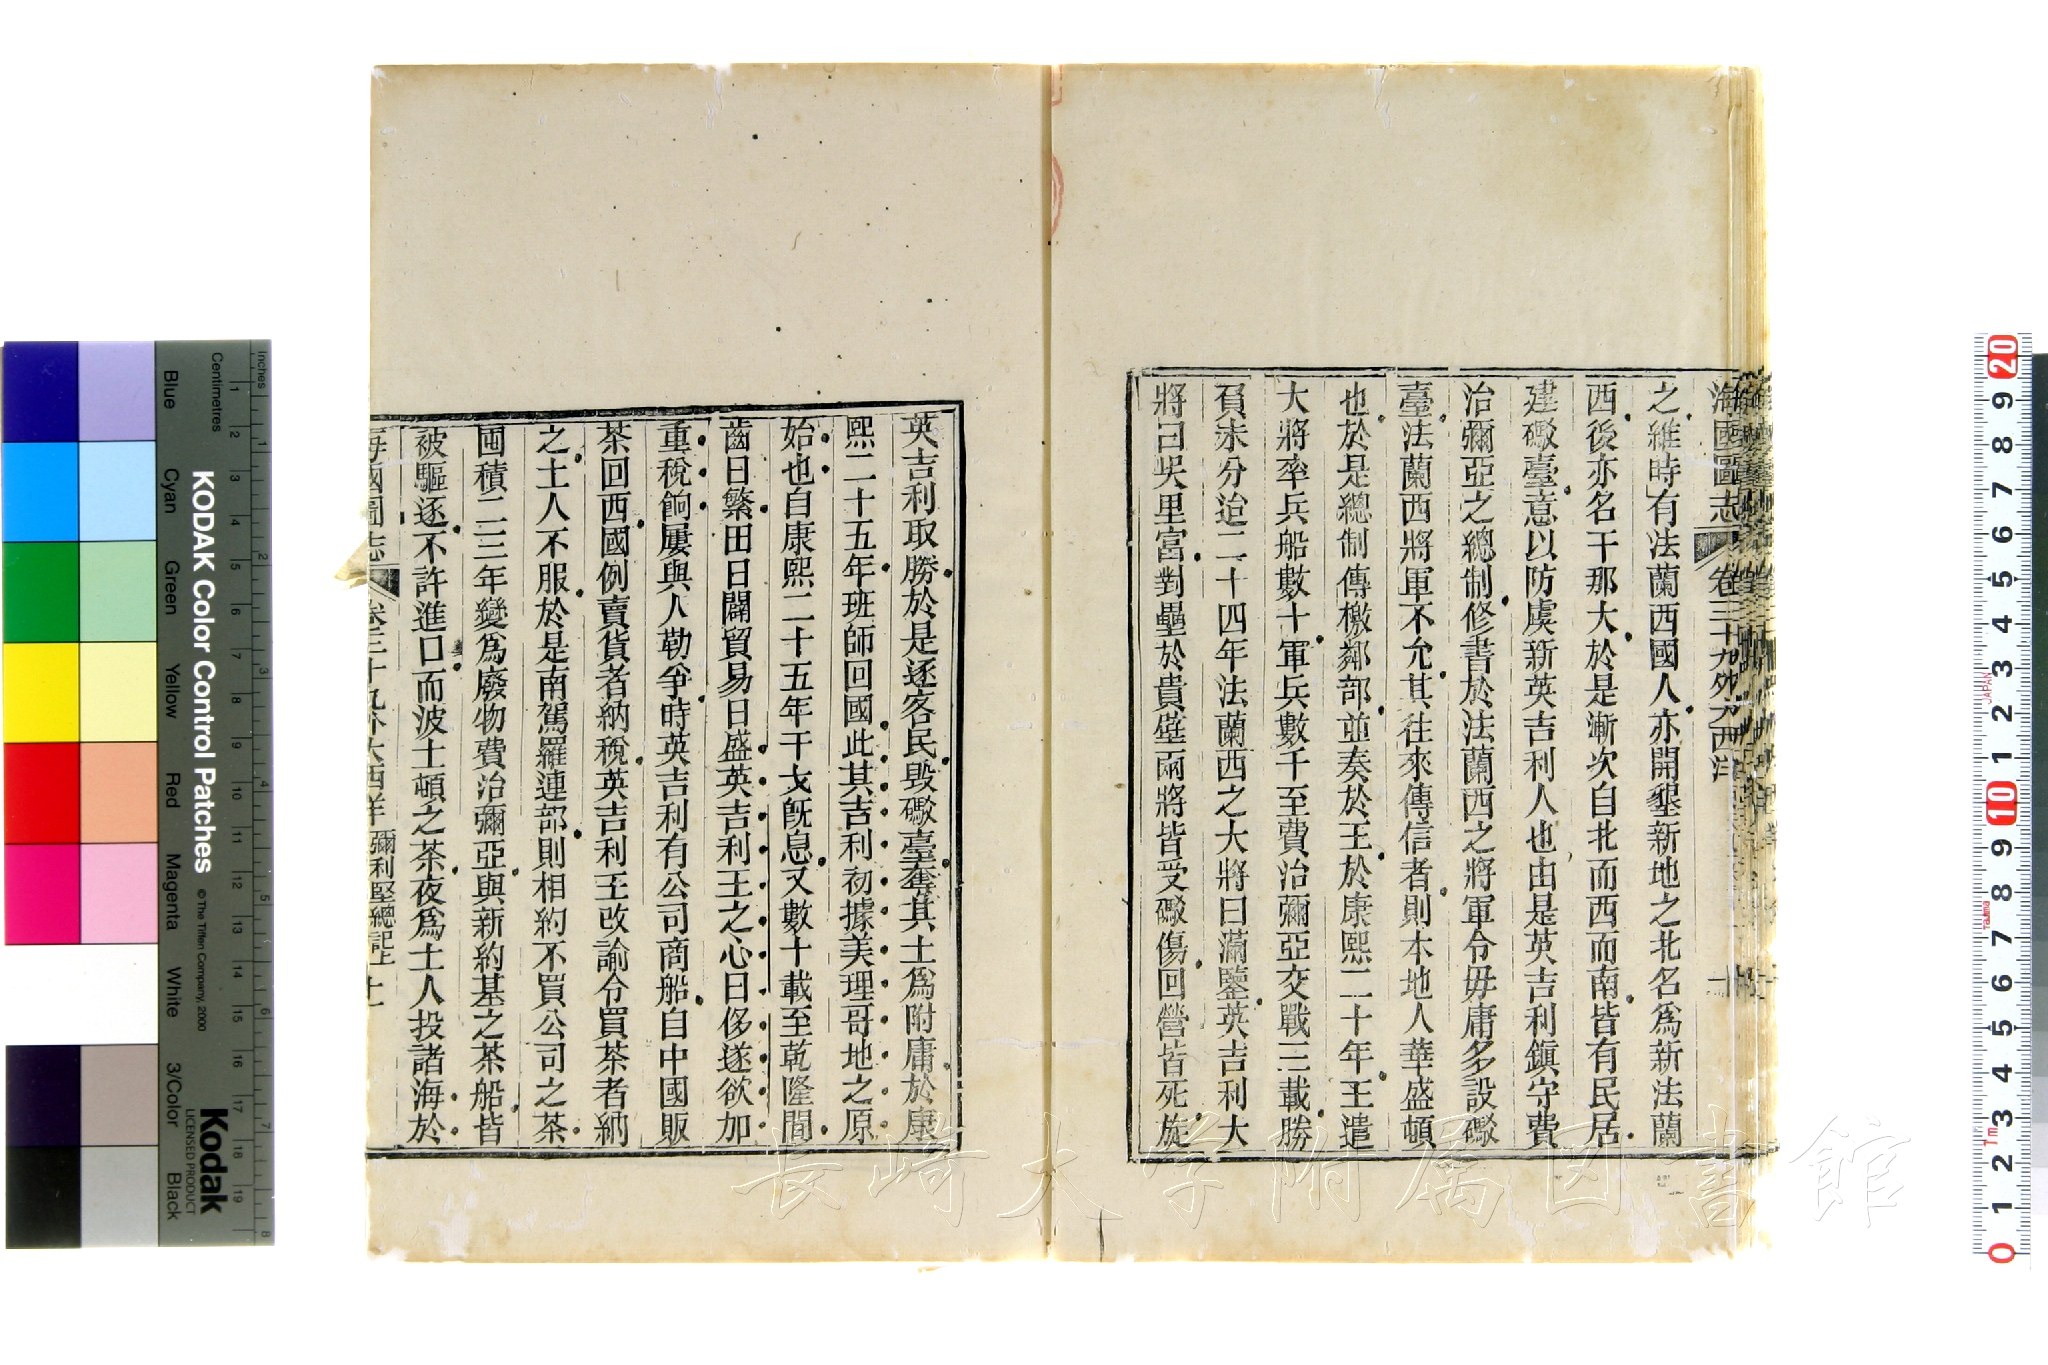 海國圖志 卷三十九 外大西洋
之維時有法蘭西國人亦開墾新地之北名爲新法蘭
西後亦名干那大於是漸次自北而西而南皆有民居
建礮臺意以防虞新英吉利人也由是英吉利鎮守費
治彌亞之總制修書於法蘭西之將軍令毋庸多設礮
臺法蘭西將軍不允其往來傳信者則本地人華盛頓
也於是總制傳檄鄰部並奏於王於康熙二十年王遣
大將率兵船數十軍兵數千至費治彌亞交戰三載勝
負未分迨二十四年法蘭西之大將曰滿鑒英吉利大
將曰吳里富對壘於貴壁兩將皆受礮傷回營皆死旋
英吉利取勝於是逐客民毀礮臺奪其土爲附庸於康
熙二十五年班師回國此其吉利初據美理哥地之原
始也自康熙二十五年干戈既息又數十載至乾隆間
齒日繁田日闢貿易日盛英吉利王之心日侈遂欲加
重稅餉屢與人勒爭時英吉利有公司商船自中國販
茶回西國例賣貨者納稅英吉利王改諭令買茶者納
之土人不服於是南駕羅連部則相約不買公司之茶
囤積二三年變爲廢物費治彌亞與新約基之茶船皆
被驅逐不許進口而波士頓之茶夜爲土人投諸海於
海國圖志 卷三十九 外大西洋 彌利堅總記上 十一
KODAK Color Control Patches
© The Tiffen Company, 2000
Kodak
LICENSED PRODUCT
Inches
Centimetres
Blue
Cyan
Green
Yellow
Red
Magenta
White
3/Color
Black
長崎大学附属図書館
JAPAN